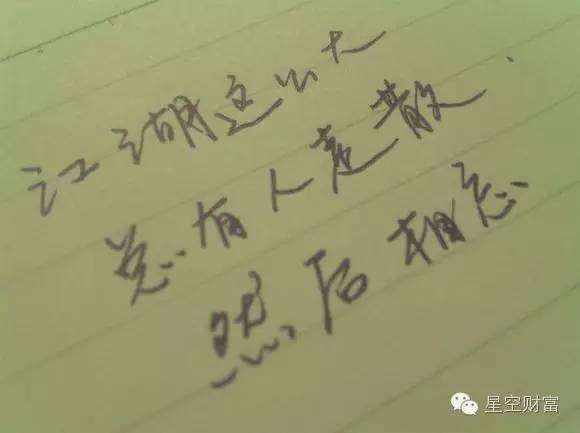 江湖这么大
总有人走散.
然后相忘
星空财富